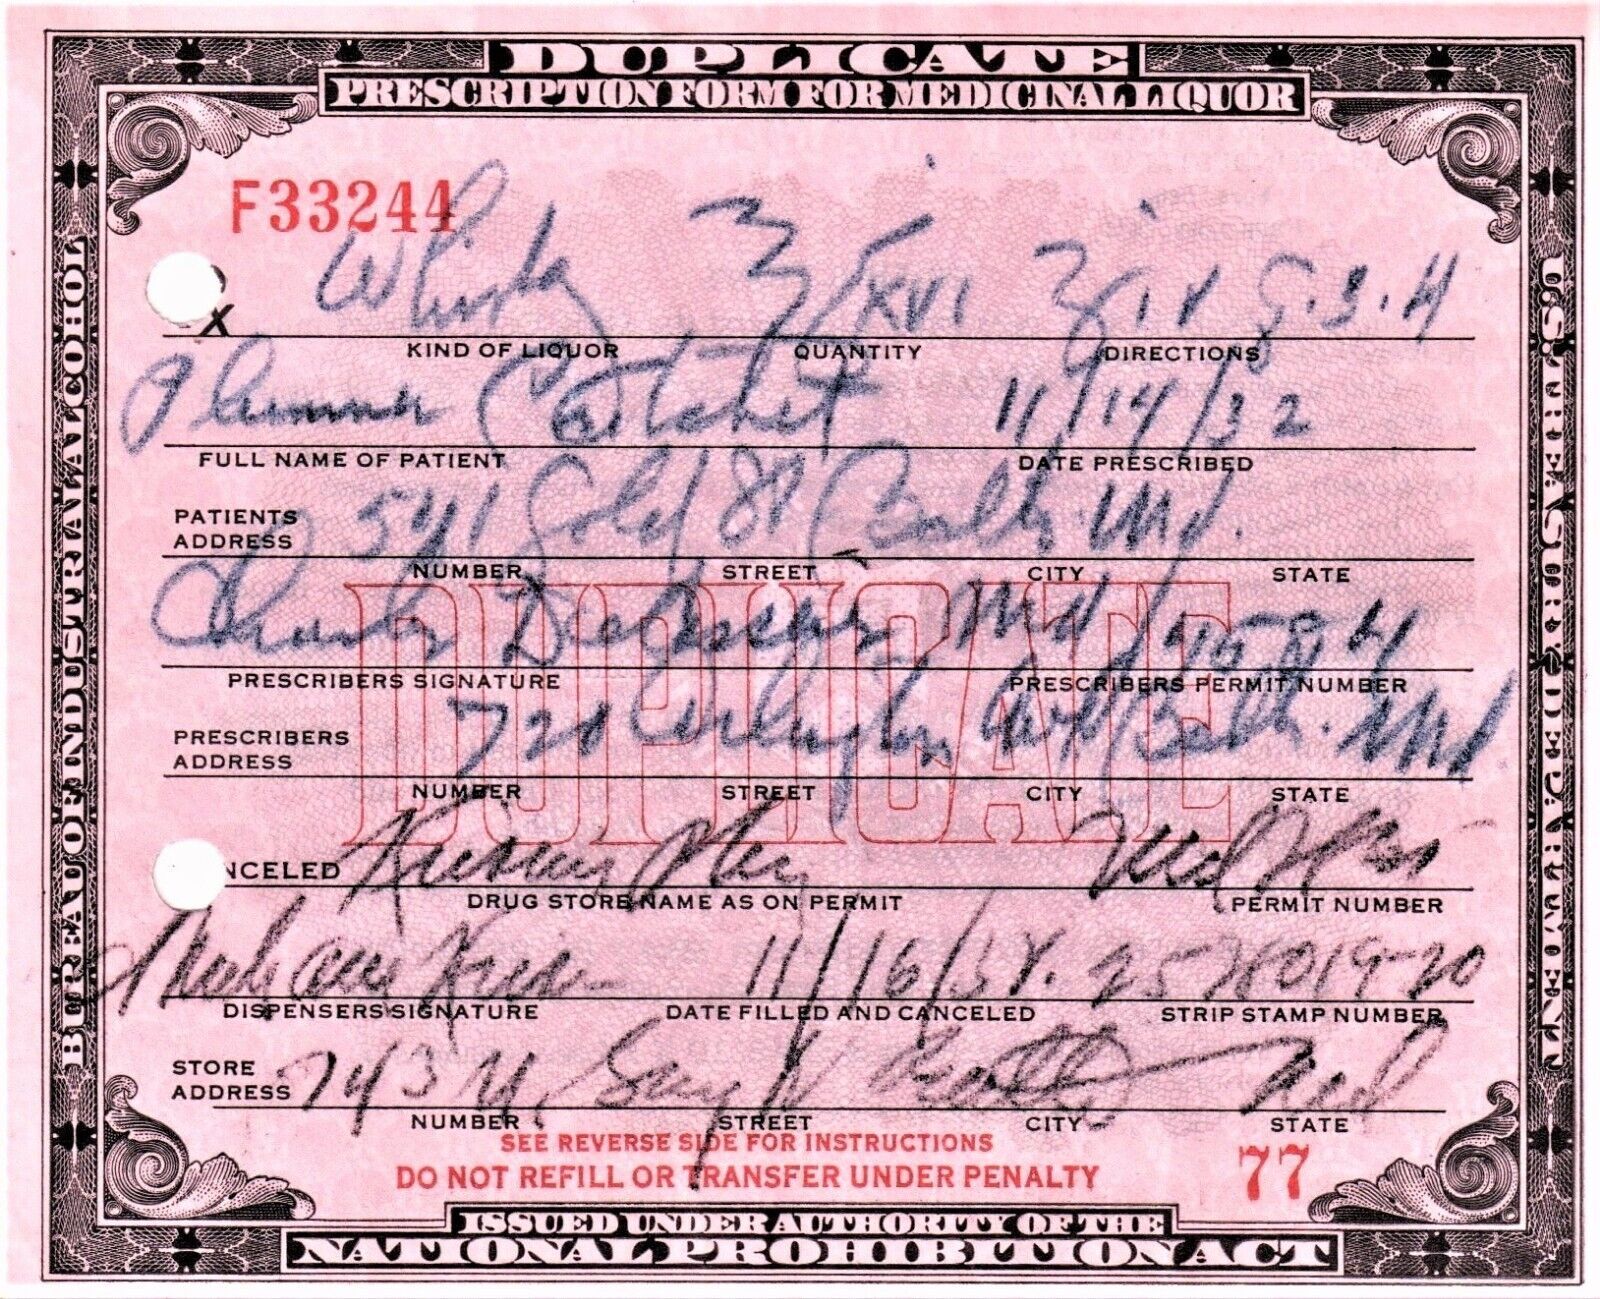 DUPLICATE
PRESCRIPTION FORM FOR MEDICINAL LIQUOR
BUREAU OF INDUSTRIAL ALCOHOL
U.S. TREASURY DEPARTMENT
F33244
Whisky ʒ XVI ʒ
KIND OF LIQUOR QUANTITY DIRECTIONS
11/14/32
FULL NAME OF PATIENT DATE PRESCRIBED
PATIENTS ADDRESS 541 Gold St Balto. Md.
NUMBER STREET CITY STATE
DUPLICATE
Charles Md
PRESCRIBERS SIGNATURE PRESCRIBERS PERMIT NUMBER
PRESCRIBERS ADDRESS Arlington Balto. Md
NUMBER STREET CITY STATE
NCELED Md
DRUG STORE NAME AS ON PERMIT PERMIT NUMBER
11/16/32. 2578019-20
DISPENSERS SIGNATURE DATE FILLED AND CANCELED STRIP STAMP NUMBER
STORE ADDRESS 743 N. Gay St Balto Md
NUMBER STREET CITY STATE
SEE REVERSE SIDE FOR INSTRUCTIONS
DO NOT REFILL OR TRANSFER UNDER PENALTY
77
ISSUED UNDER AUTHORITY OF THE
NATIONAL PROHIBITION ACT